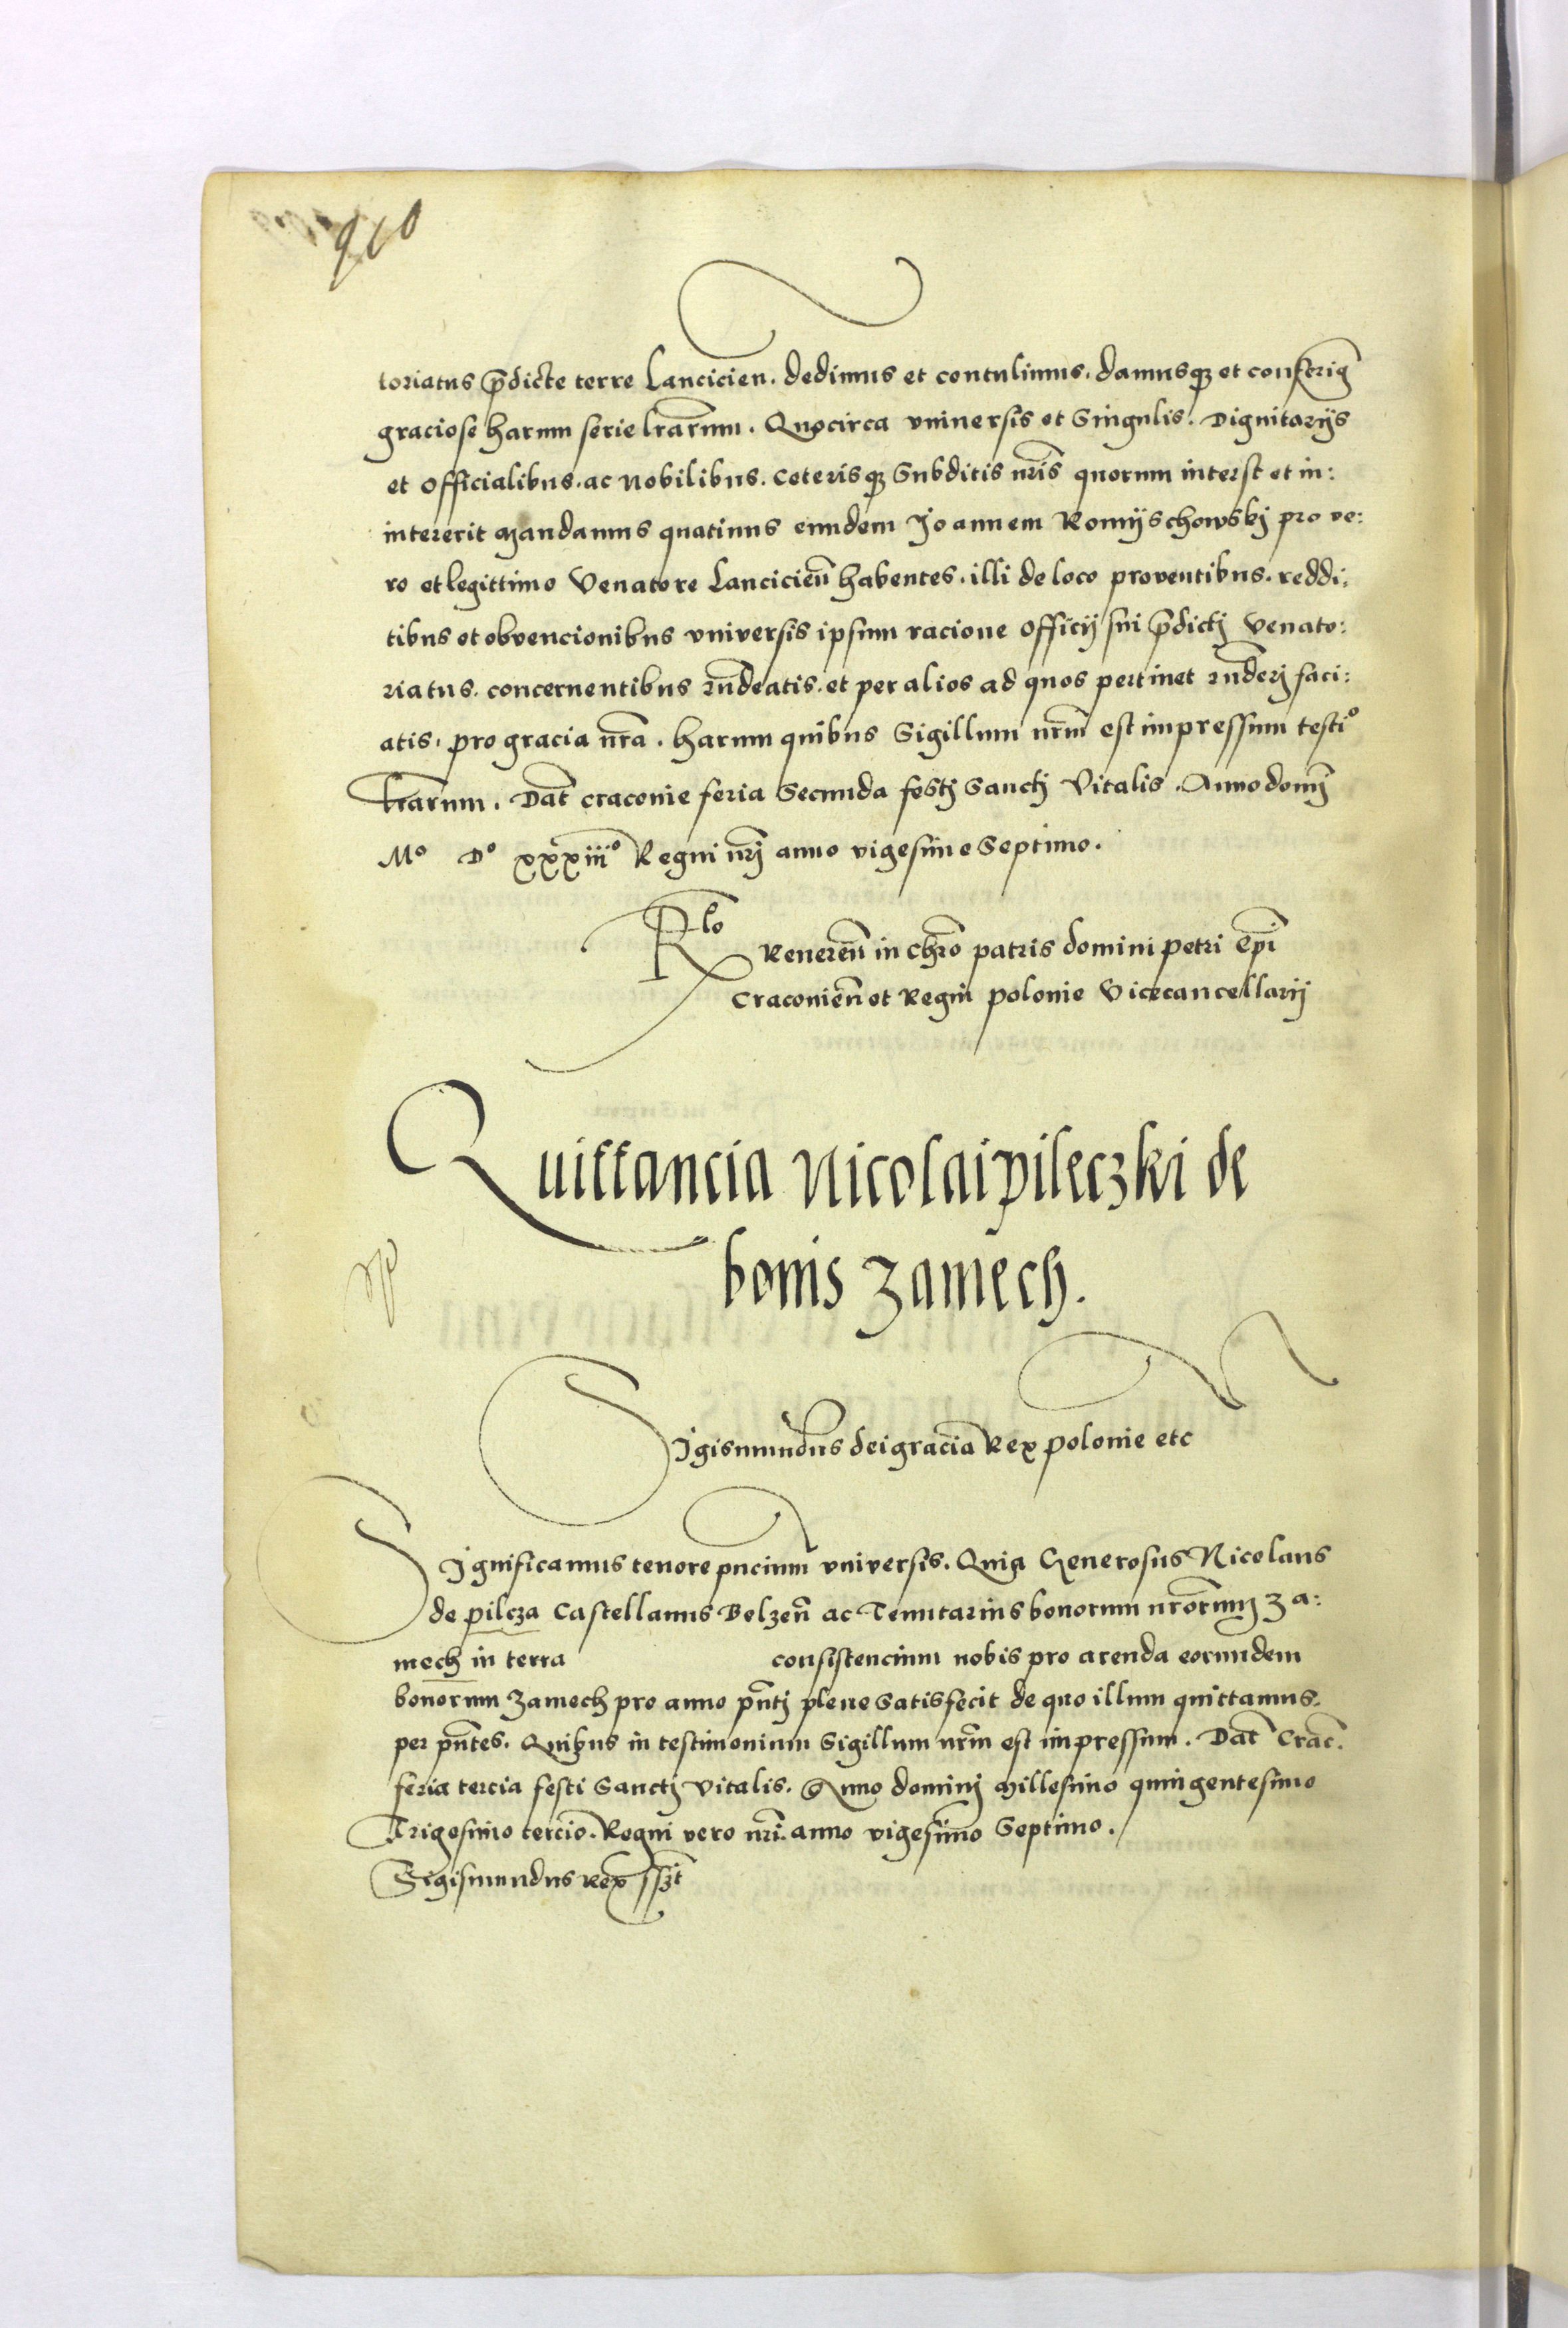 910
toriatus p̄dicte terre Lancicien. dedimus et contulimus. damusqȝ et conferim̄
graciose harum serie lr̄arum. Quocirca vniuersis et Singulis. Dignitarijs
et officialibus. ac Nobilibus. ceterisqȝ Subditis nr̄is quorum interest et in:
intererit Mandamus quatinus eundem Joannem Romijschowskj pro ve:
ro et legittimo Venatore Lancicien̄ habentes. illi de loco proventibus. reddi:
tibus et obvencionibus vniversis ipsum racione officij sui p̄dictj Venato:
riatus. concernentibus rn̄deatis. et per alios ad quos pertinet rn̄derj faci:
atis. pro gracia nr̄a. harum quibus Sigillum nr̄m est impressum testio
lr̄arum. Dat̄ Craconie feria Secunda festj Sanctj Vitalis. Anno dominj
Mo Do xxxiiio Regni nr̄j anno vigesimo Septimo.
Rlo Reueren̄ in chr̄o patris domini petri Ep̄i
Craconien̄ et Regni polonie Vicecancellarij
Quittancia Nicolai pileczki de
bonis Zamech.
Sigismundus dei gracia Rex polonie etc
Significamus tenore pn̄cium vniversis. Quia Generosus Nicolaus
de pilcza Castellanus Belzen̄ ac Tenutarius bonorum nr̄orum Za:
mech in terra consistencium nobis pro arenda eorundem
bonorum Zamech pro anno pn̄tj plene Satisfecit de quo illum quittamus.
per pn̄tes. Quibus in testimonium Sigillum nr̄m est impressum. Dat̄ Crac̄.
feria tercia festi Sanctj Vitalis. Anno dominj Millesimo quingentesimo
Trigesimo tercio. Regni vero nr̄i. anno vigesimo Septimo.
Sigismundus Rex sszt̄